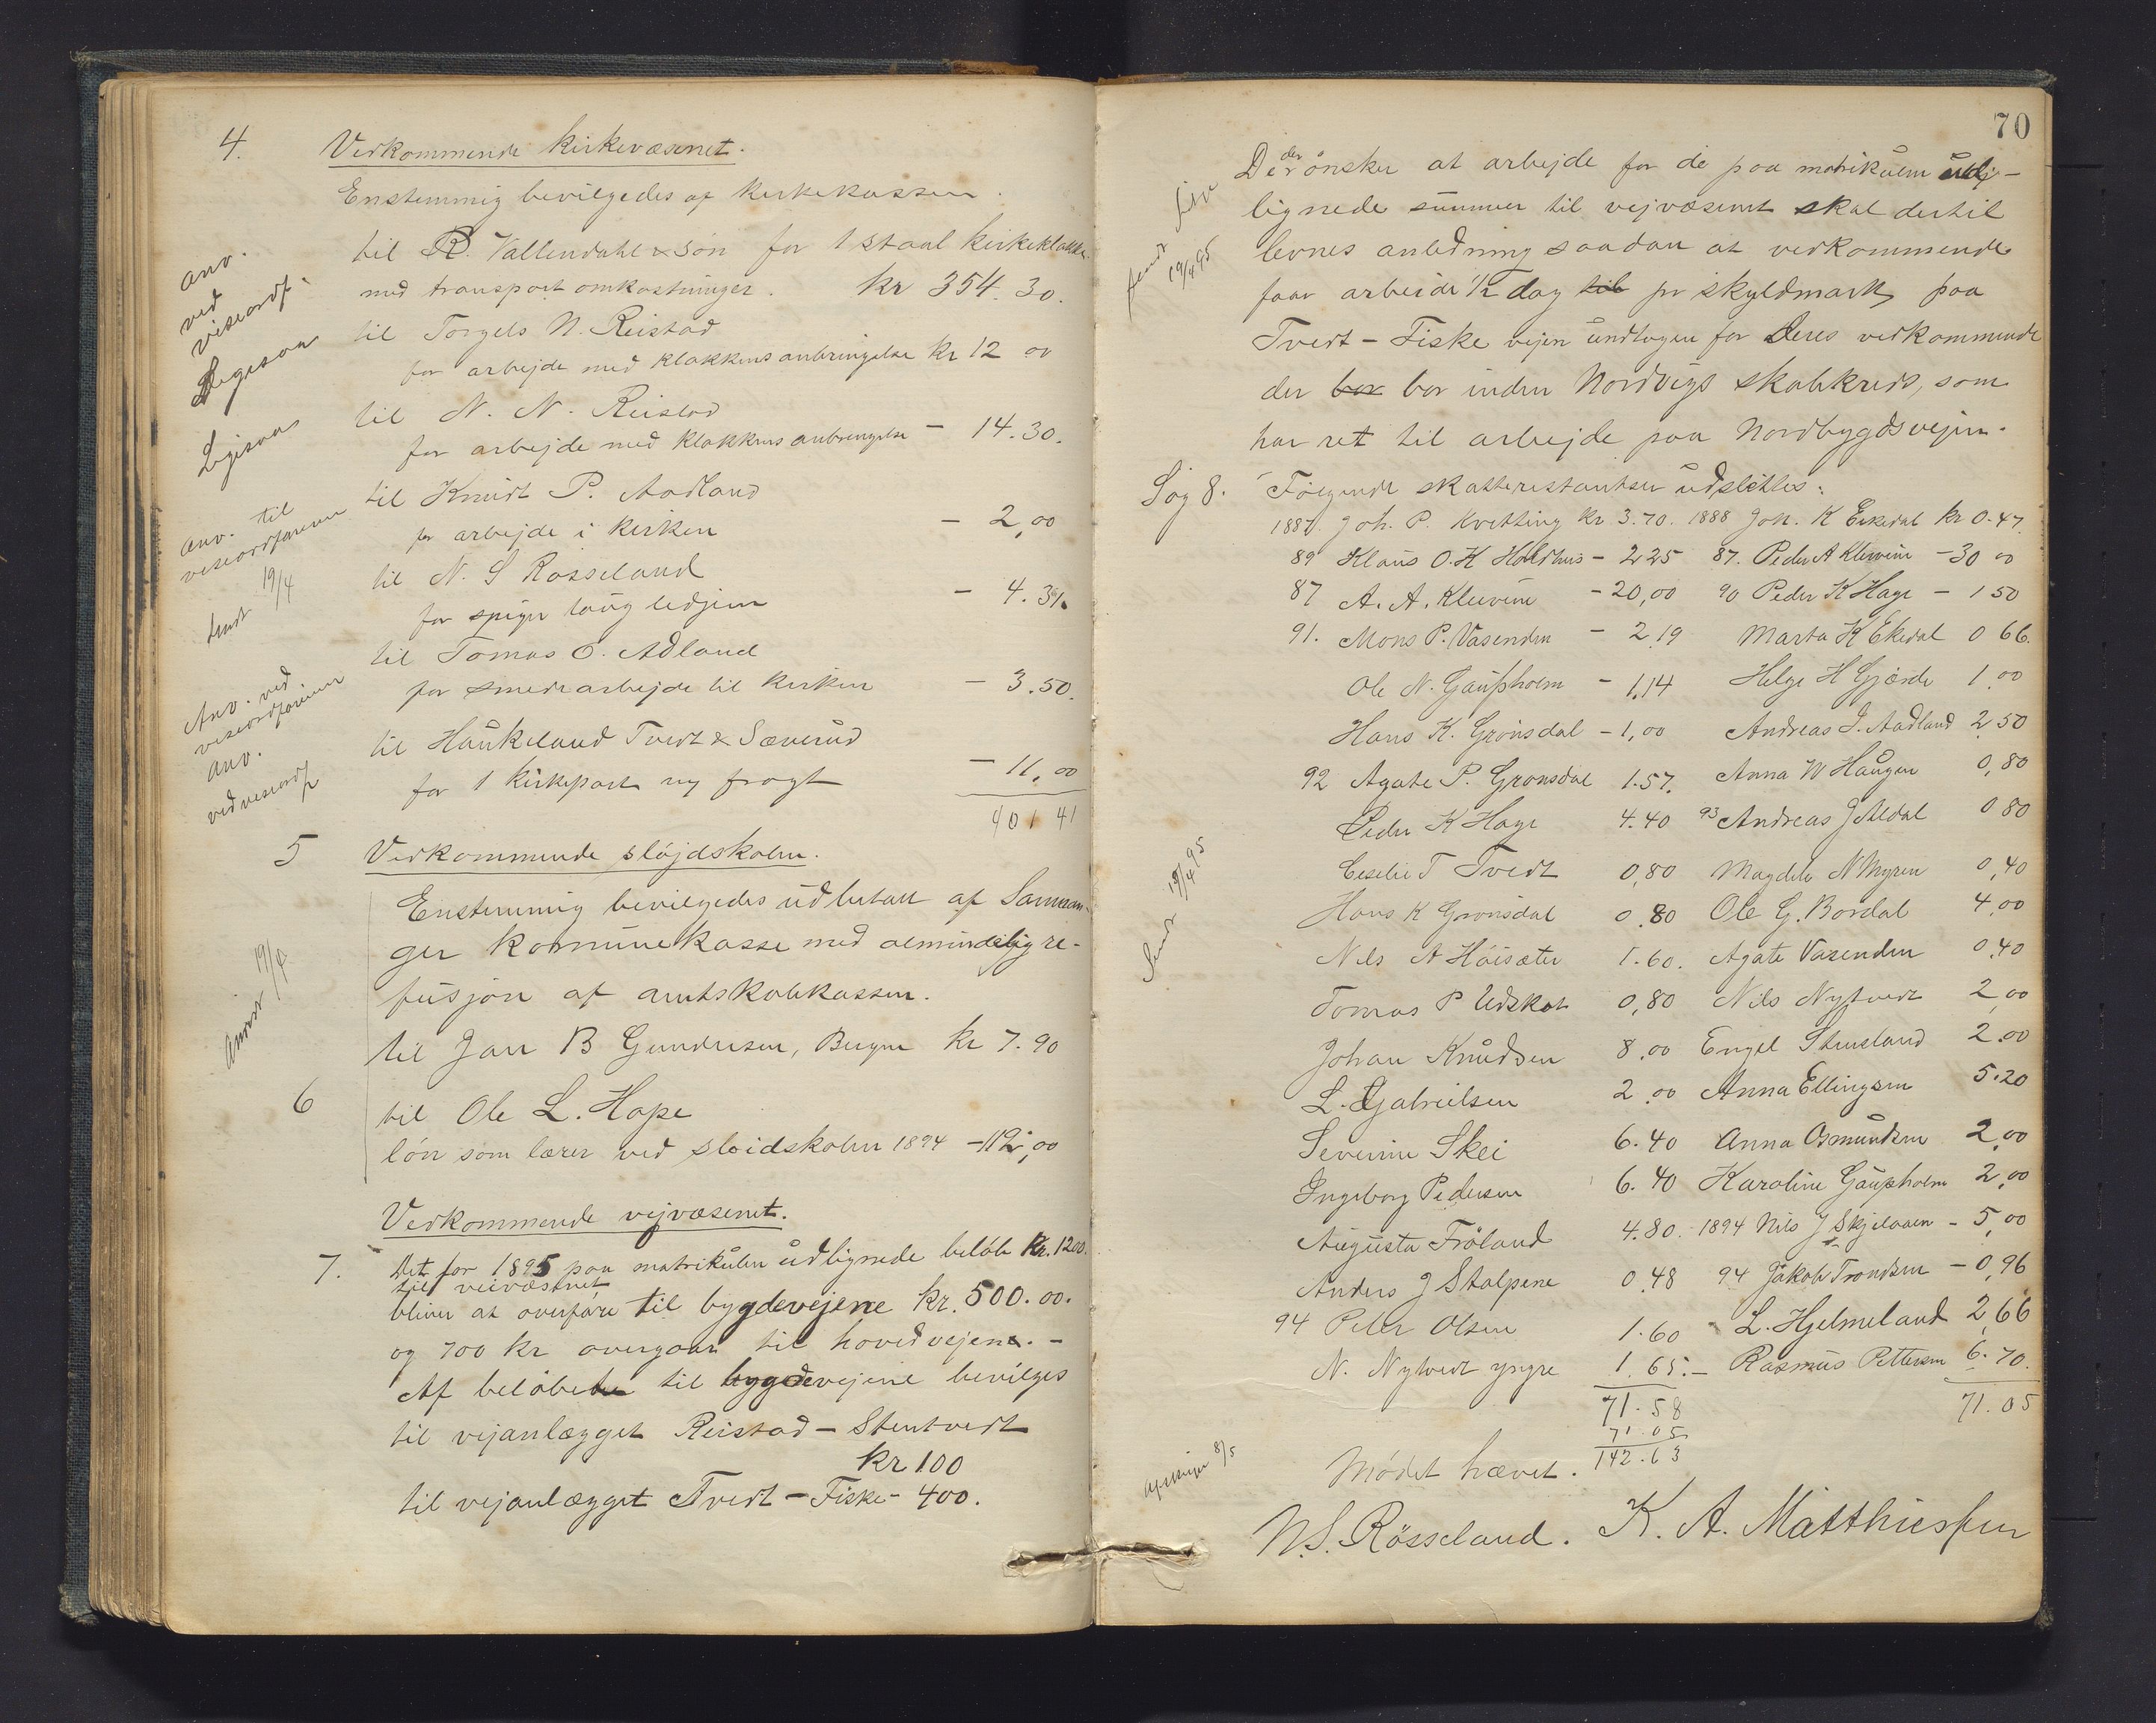 4. Vedkommende kirkevæsenet.
Enstemmig bevilgedes af kirkekassen.
til R. Vallendahl & Søn for 1 staal kirkeklokke
med transport omkostninger. kr 354.30.
til Torgels N. Reistad
for arbejde med klokkens anbringelse kr 12 00
til N. N. Reistad
for arbejde med klokkens anbringelse – 14.30.
til Knudt P. Aadland
for arbejde i kirken – 2,00
til N. S Rosseland
for spiger taug ledjern – 4.31.
til Tomas O. Adland
for smedearbejde til kirken – 3.50.
til Haukeland Tvedt & Sæverud
for 1 kirkeport og fragt – 11,00
401 41
anv.
ved
viseordf.
Ligesaa
Ligesaa
anv. til
viseordføreren
sendt 19/4
Anv. ved
viseordføreren
anv.
ved viseordf
5 Vedkommende sløjdskolen.
Enstemmig bevilgedes udbetalt af Samnan-
ger kommunekasse med almindelig re-
fusjon af amtskolekassen.
til Jan B Gundersen, Bergen kr 7.90
6 til Ole L. Hope
løn som lærer ved sløidskolen 1894 – 112,00
Anvist 19/4
Vedkommende vejvæsenet.
7. Det for 1895 paa matrikulen udlignede beløb kr. 1200.
til veivæsenet
bliver at overføre til bygdevejene kr. 500.00.
og 700 kr overgaar til hovedvejene. –
Af beløbet til bygdevejene bevilges
til vejanlægget Reistad – Stentvedt
kr 100
til vejanlægget Tvedt – Fiske – 400.
70
De der ønsker at arbejde for de paa matrikulen udlig-
lignede summer til vejvæsenet skal dertil
levnes anledning saadan at vedkommende
faar arbeide 1/2 dag til pr skyldmark paa
Tvedt – Fiske vejen undtagen for deres vedkommende
der bor bor inden Nordvigs skolekreds, som
har ret til arbejde paa Nordbygdsvejen.
sendt
19/4 95
Sag 8. Følgende skatterestantser udslettes:
1887. Joh. P. Kvitting kr. 3.70. 1888 Joh. K Eikedal kr 0.47
89 Klaus O. K Holdhus – 2 25 87. Peder A Kleivene – 30 00
87 A. A. Kleivene – 20,00 90 Peder K Hage – 1 50
91. Mons P. Vasenden – 2 19 Marta K Ekedal 0 66.
Ole N. Gaupholm – 1,14 Helge H Gjærde 1,00
Hans K. Grønsdal – 1,00 Andreas J. Aadland 2,50
92 Agate P. Grønsdal 1.57. Anna W Haugen 0,80
Peder K Hage 4.40 93 Andreas J Aldal 0 80
Ceselie T Tvedt 0,80 Magdele N Myren 0,40
Hans K Grønsdal 0.80 Ole G. Bordal 4,00
Nils A Høisæter 1.60. Agate Vasenden 0.40
Tomas P Udskot 0,80 Nils Nytvedt 2,00
Johan Knudsen 8.00 Engel Stensland 2.00
L. Gabrielsen 2.00 Anna Ellingsen 5.20
Severine Skei 6.40 Anna Osmundsen 2,00
Ingeborg Pedersen 6.40 Karoline Gaupholm 2,00
Augusta Frøland 4.80. 1894 Nils J Skjelaaen – 5,00
Anders J Stalpene 0.48 94 Jakob Trondsen – 0,96
94 Peter Olsen 1.60 L. Hjelmeland 2,66
N. Nytvedt yngre 1.65. – Rasmus Pettersen 6.70.
71.58 71.05
71.05
142.63
Sendt 19/4 95
8/5
Mødet hævet.
N. S. Rösseland. K. A. Matthiessen